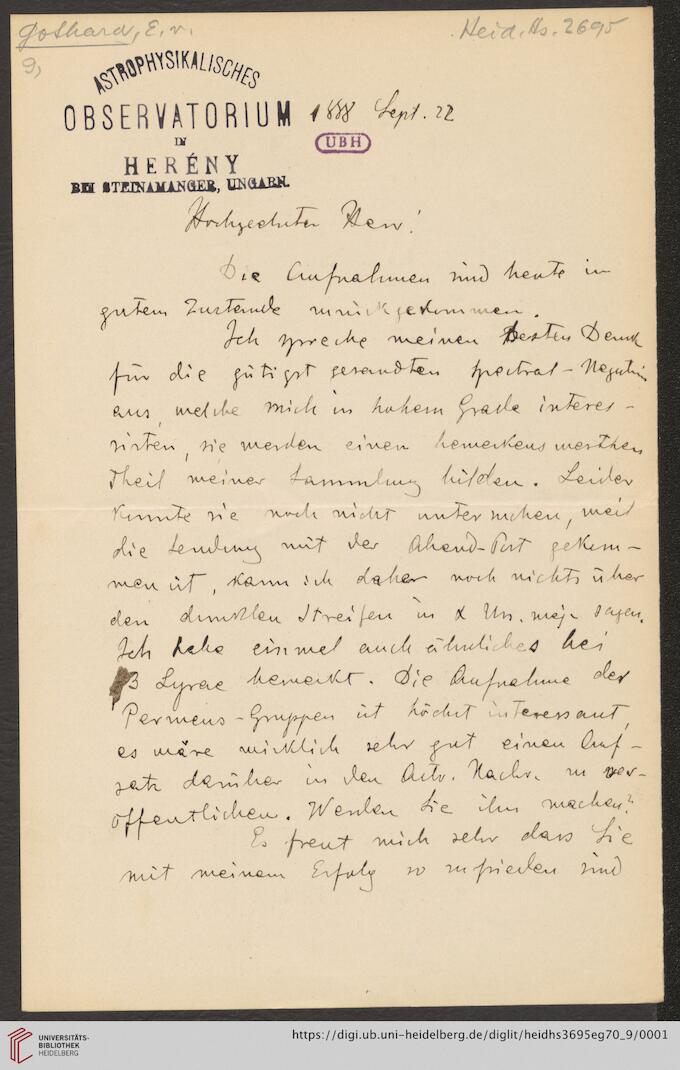 Gothard, E. v.
Heid. Hs. 2695
9,
ASTROPHYSIKALISCHES
OBSERVATORIUM
IN
HERÉNY
BEI STEINAMANGER, UNGARN.
1888 Sept. 22
UBH
Hochgeehrter Herr!
Die Aufnahmen sind heute in
gutem Zustande zurückgekommen.
Ich spreche meinen besten Dank
für die gütigst gesandten Spectral-Negative
aus, welche mich in hohem Grade interes-
sirten, sie werden einen bemerkenswerthen
Theil meiner Sammlung bilden. Leider
konnte sie noch nicht untersuchen, weil
die Sendung mit der Abend-Post gekom-
men ist, kann ich daher noch nichts über
den dunklen Streifen in α Urs. maj. sagen.
Ich habe einmal auch ähnliches bei
β Lyrae bemerkt. Die Aufnahme der
Permens-Gruppen ist höchst interessant,
es wäre wirklich sehr gut einen Auf-
satz darüber in den Astr. Nachr. zu ver-
öffentlichen. Werden Sie ihn machen?
Es freut mich sehr dass Sie
mit meinem Erfolg so zufrieden sind
UNIVERSITÄTS-
BIBLIOTHEK
HEIDELBERG
https://digi.ub.uni-heidelberg.de/diglit/heidhs3695eg70_9/0001